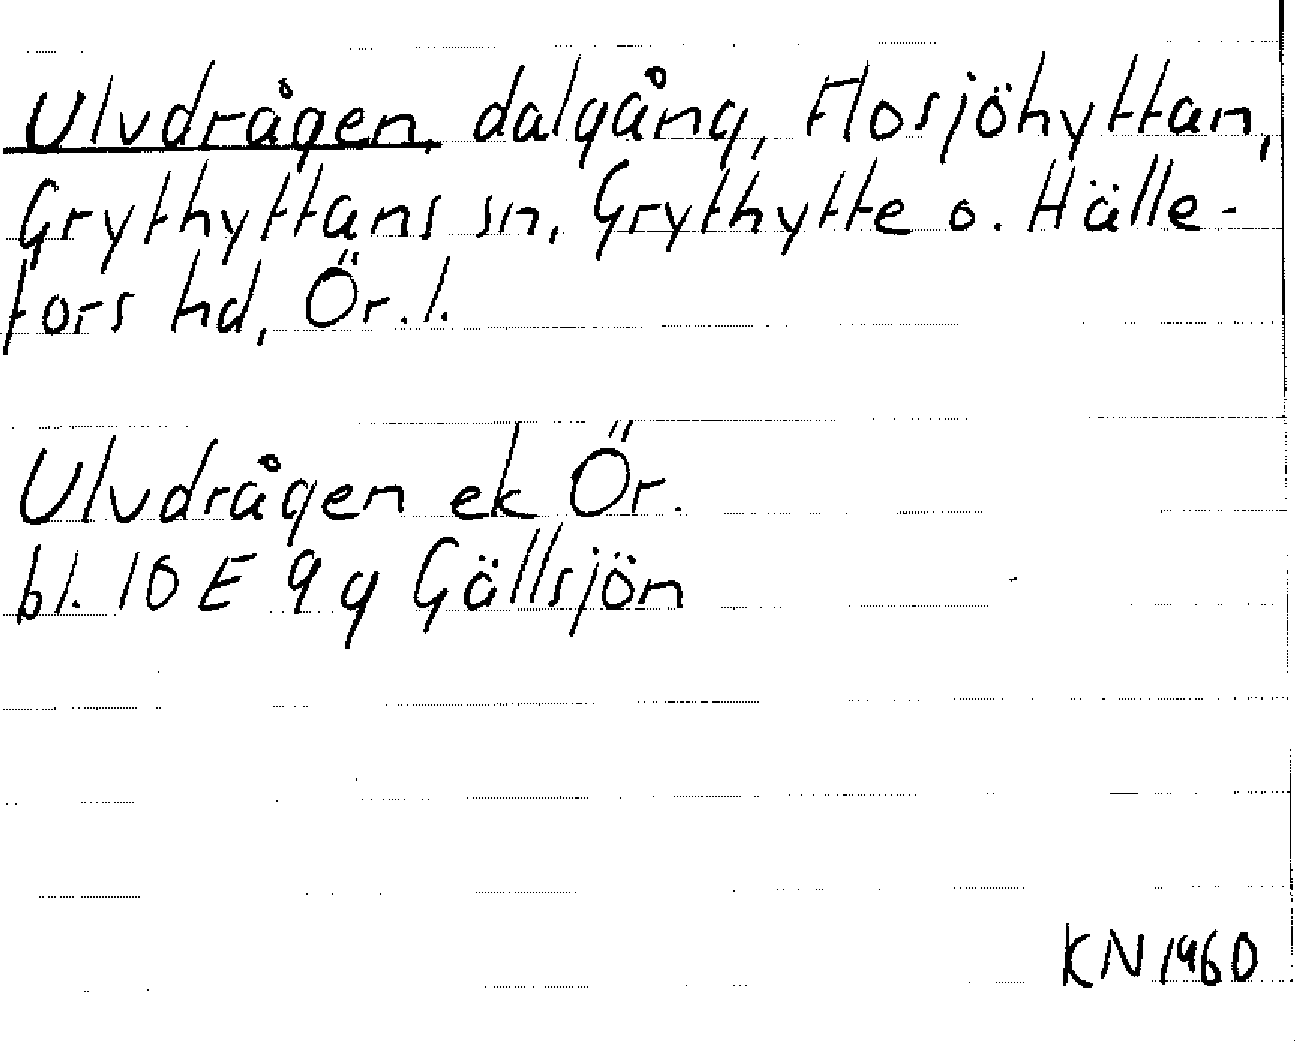 Ulvdrågen, dalgång, Flosjöhyttan,
Grythyttans sn, Grythytte o. Hälle-
fors hd, Ör. l.
Ulvdrågen ek Ör.
bl. 10 E 9 g Gällsjön
KN 1960